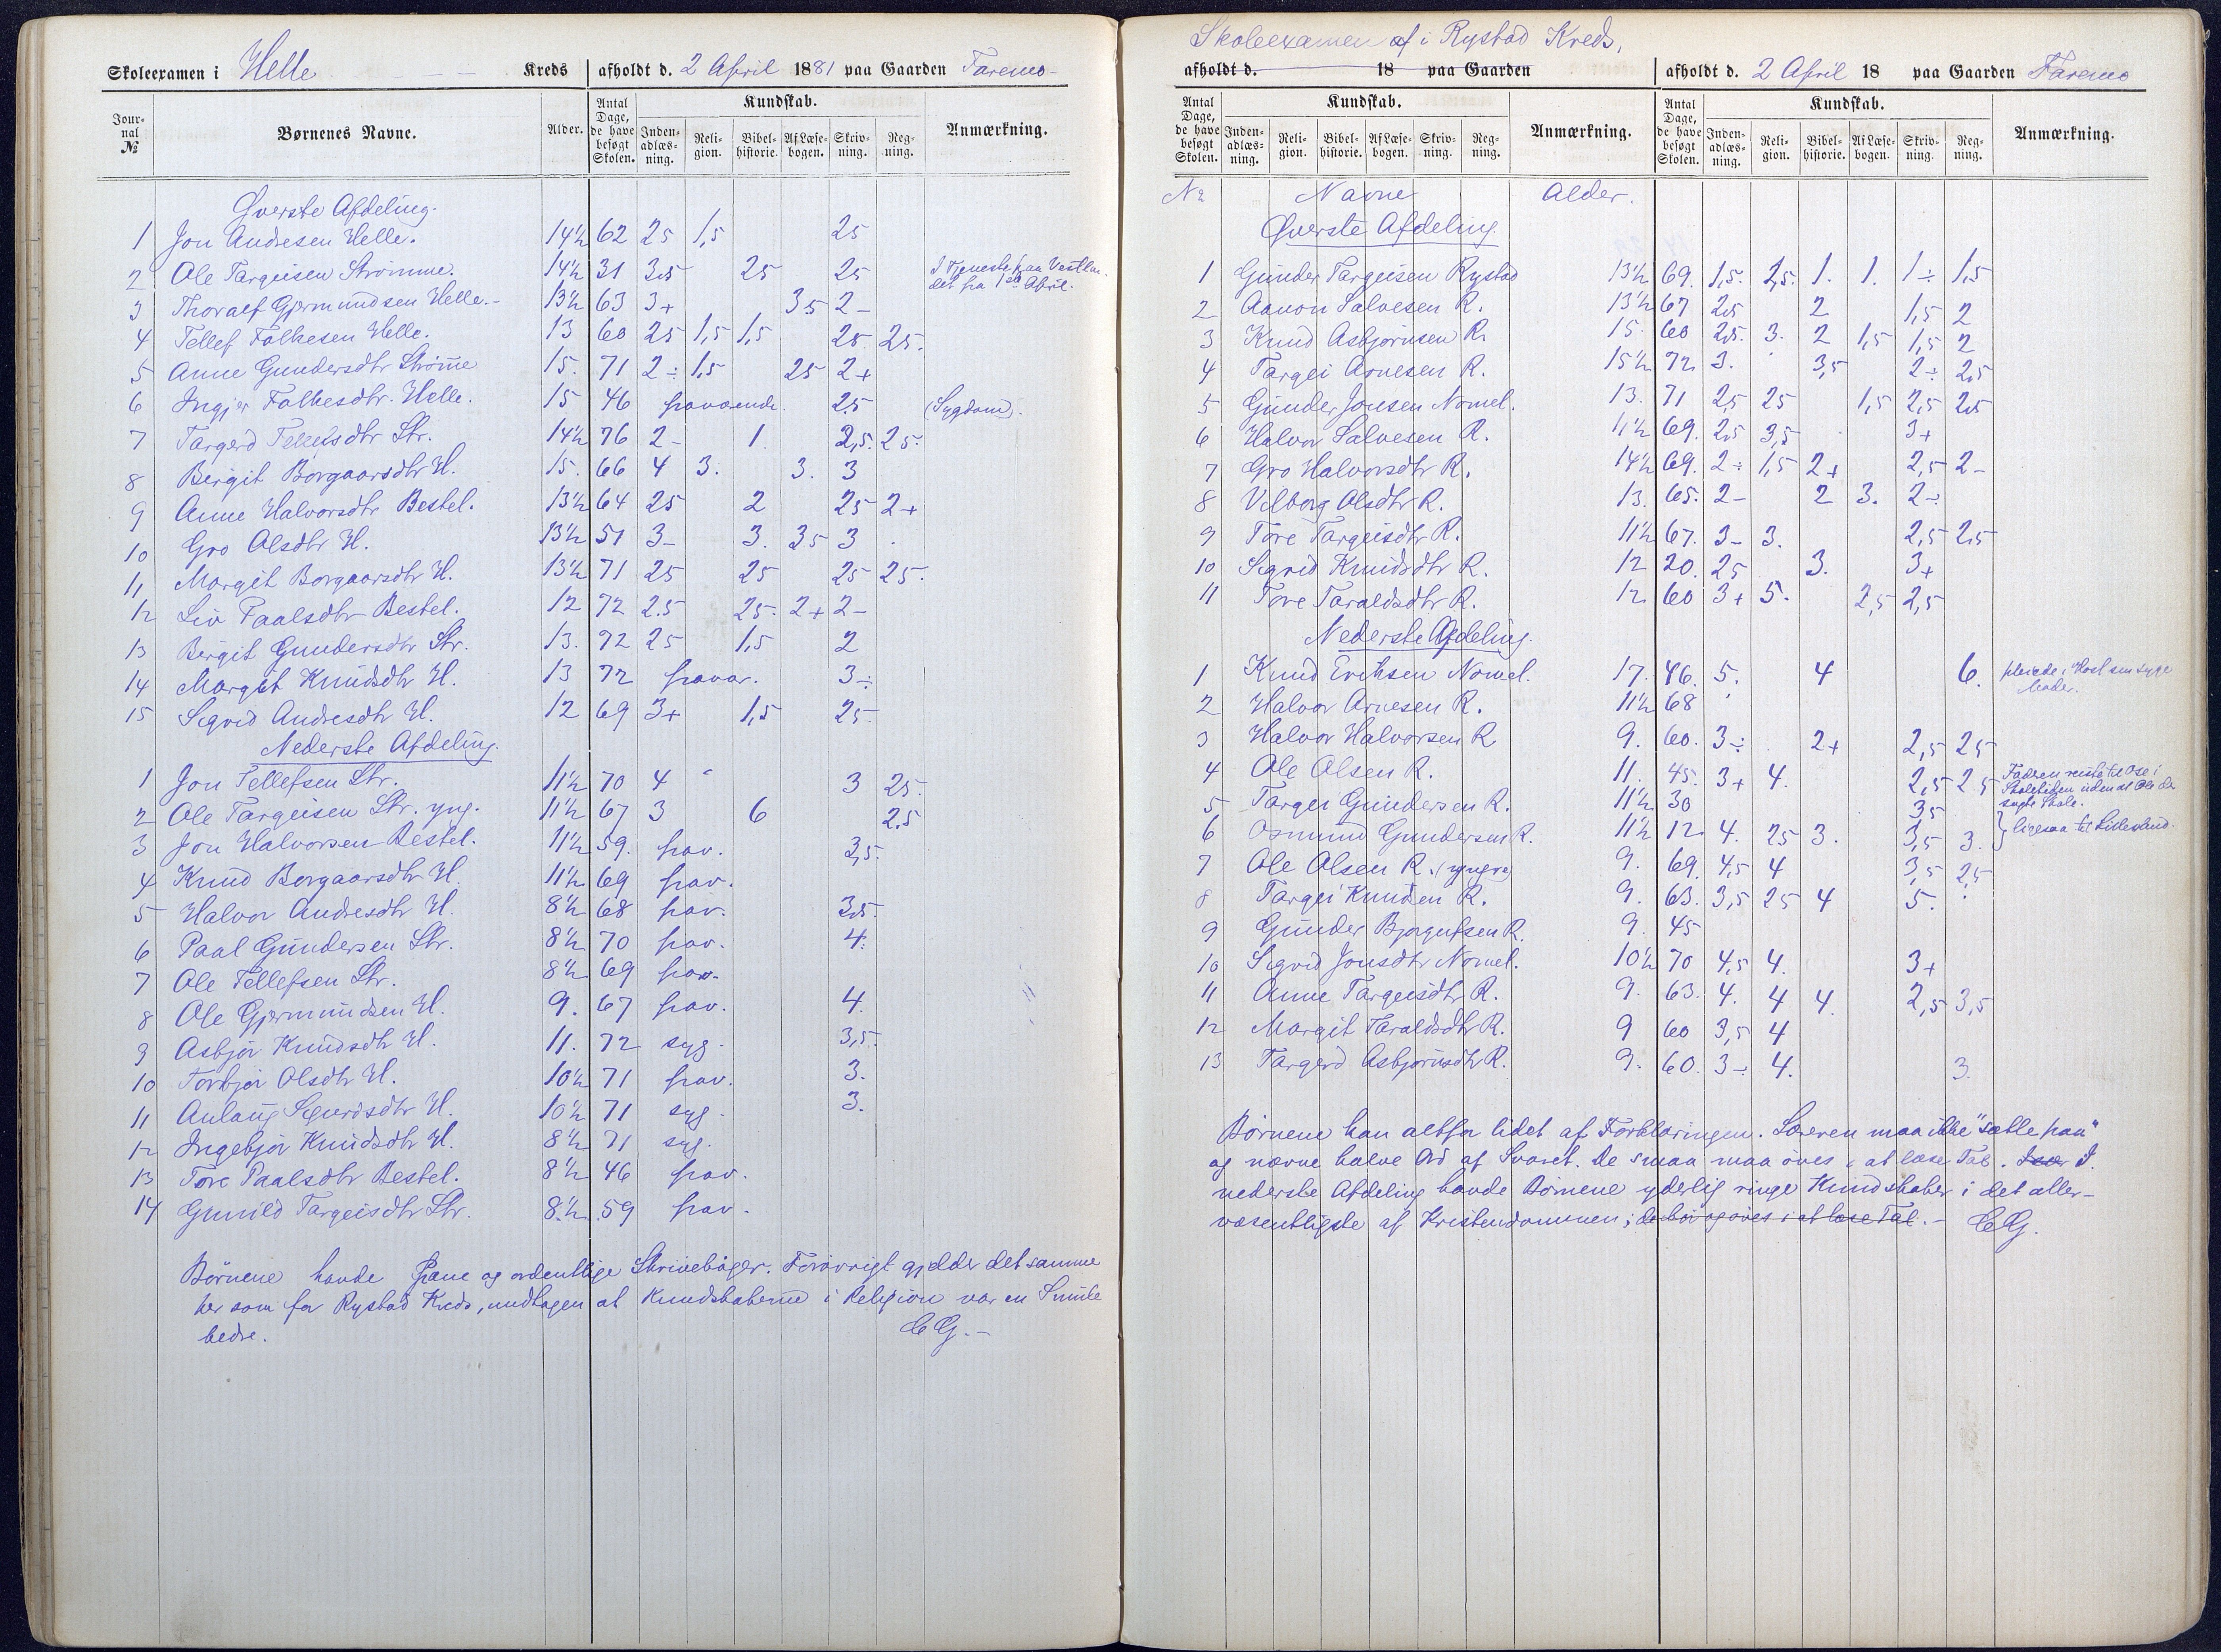 Skoleexamen i Helle Kreds afholdt d. 2 April 1881 paa Gaarden Faremo
Jour-nal № Børnenes Navne. Alder. Antal Dage, de have besøgt Skolen. Kundskab. Inden-adlæs-ning. Reli-gion. Bibel-historie. Af Læse-bogen. Skriv-ning. Reg-ning. Anmærkning.
Øverste Afdeling.
1 Jon Andresen Helle. 14½ 62 25 1,5 25
2 Ole Targeisen Strømme. 14½ 31 3,5 25 25 I Tjeneste paa Vestlan-det fra 1ste April.
3 Thoralf Gjermundsen Helle. 13½ 63 3+ 35 2-
4 Tellef Folkesen Helle. 13 60 25 1,5 1,5 25. 25.
5 Anne Gundersdtr Strømme 15. 71 2÷ 1,5 25 2+
6 Ingjer Folkesdtr. Helle. 15 46 fraværende. 2.5 (Sygdom).
7 Targerd Tellefsdtr Str. 14½ 76 2- 1. 2,5. 25.
8 Birgit Borgaarsdtr H. 15. 66 4 3. 3. 3
9 Anne Halvorsdtr Bestel. 13½ 64 25 2 25 2+
10 Gro Olsdtr H. 13½ 51 3- 3. 35 3
11 Margit Borgaarsdtr H. 13½ 71 25 25 25 25.
12 Liv Paalsdtr Bestel. 12 72 2.5 25. 2+ 2-
13 Birgit Gundersdtr Str. 13. 72 25 1,5 2
14 Margit Knudsdtr H. 13 72 fravær. 3÷
15 Sigrid Andresdtr H. 12 69 3+ 1,5 25-
Nederste Afdeling.
1 Jon Tellefsen Str. 11½ 70 4 3 25.
2 Ole Targeisen Str. yng. 11½ 67 3 6 2,5
3 Jon Halvorsen Bestel. 11½ 59. frav. 3,5.
4 Knud Borgaarsdtr H. 11½ 69 frav.
5 Halvor Andresdtr H. 8½ 68 frav. 3,5.
6 Paal Gundersen Str. 8½ 70 frav. 4.
7 Ole Tellefsen Str. 8½ 69 frav.
8 Ole Gjermundsen H. 9. 67 frav. 4.
9 Asbjør Knudsdtr H. 11. 72 syg. 3,5.
10 Torbjør Olsdtr H. 10½ 71 frav. 3.
11 Anlaug Sigurdsdtr H. 10½ 71 syg. 3.
12 Ingebjør Knudsdtr H. 8½ 71 syg.
13 Tore Paalsdtr Bestel. 8½ 46 frav.
14 Gunild Targeisdtr Str. 8½ 59 frav.
Børnene havde pæne og ordentlige Skrivebøger. Forøvrigt gjælder det samme
her som for Rystad Kreds, undtagen at Kundskaberne i Religion var en Smule
bedre. CG.-
Skoleexamen af i Rystad Kreds,
afholdt d. 18 paa Gaarden afholdt d. 2 April 18 paa Gaarden Faremo
Antal Dage, de have besøgt Skolen. Kundskab. Inden-adlæs-ning. Reli-gion. Bibel-historie. Af Læse-bogen. Skriv-ning. Reg-ning. Anmærkning. Antal Dage, de have besøgt Skolen. Kundskab. Inden-adlæs-ning. Reli-gion. Bibel-historie. Af Læse-bogen. Skriv-ning. Reg-ning. Anmærkning.
№ Navne Alder.
Øverste Afdeling
1 Gunder Targeisen Rystad 13½ 69. 1,5. 2,5. 1. 1. 1÷ 1,5
2 Aanon Salvesen R. 13½ 67 2,5 2 1,5 2
3 Knud Asbjørnsen R. 15. 60 2,5. 3. 2 1,5 1,5 2
4 Targei Arnesen R. 15½ 72. 3. 3,5 2÷ 2,5
5 Gunder Jonsen Nomel. 13. 71 2,5 25 1,5 2,5 2,5
6 Halvor Salvesen R. 11½ 69. 2,5 3,5 3+
7 Gro Halvorsdtr R. 14½ 69. 2÷ 1,5 2+ 2,5 2-
8 Vilborg Olsdtr R. 13. 65. 2- 2 3. 2÷
9 Tore Targeisdtr R. 11½ 67. 3- 3. 2,5 2,5
10 Sigrid Knudsdtr R. 12 20. 25 3. 3+
11 Tore Taraldsdtr R. 12. 60 3+ 5. 2,5 2,5
Nederste Afdeling.
1 Knud Eriksen Nomel. 17. 46. 5. 4 6. pleiede i Høst sin syge Moder.
2 Halvor Arnesen R. 11½ 68
3 Halvor Halvorsen R 9. 60. 3÷ 2+ 2,5 25
4 Ole Olsen R. 11. 45. 3+ 4. 2,5 25 Faderen reiste til Ose i Skoletiden uden at Ole der søgte Skole.
5 Targei Gundersen R. 11½ 30 35
6 Osmund Gundersen R. 11½ 12. 4. 25 3. 3,5 3. } ligesaa til Lillesand.
7 Ole Olsen R. (yngre) 9. 69. 4,5 4 3,5 25
8 Targei Knudsen R. 9. 63. 3,5 25 4 5.
9 Gunder Bjørgufsen R. 9. 45
10 Sigrid Jonsdtr Nomel. 10½ 70 4,5 4. 3+
11 Anne Targeisdtr R. 9. 63. 4. 4 4. 2,5 3,5
12 Margit Taraldsdtr R. 9 60 3,5 4
13 Targerd Asbjørnsdtr R. 9. 60. 3÷ 4. 3.
Børnene kan altfor lidet af Forklaringen. Læreren maa ikke "sætte paa"
og nævne halve Ord af Svaret. De smaa maa øves i at læse Tal. I
nederste Afdeling havde Børnene yderlig ringe Kundskaber i det aller-
væsentligste af Kristendommen; de bør og øves i at læse Tal. - CG.